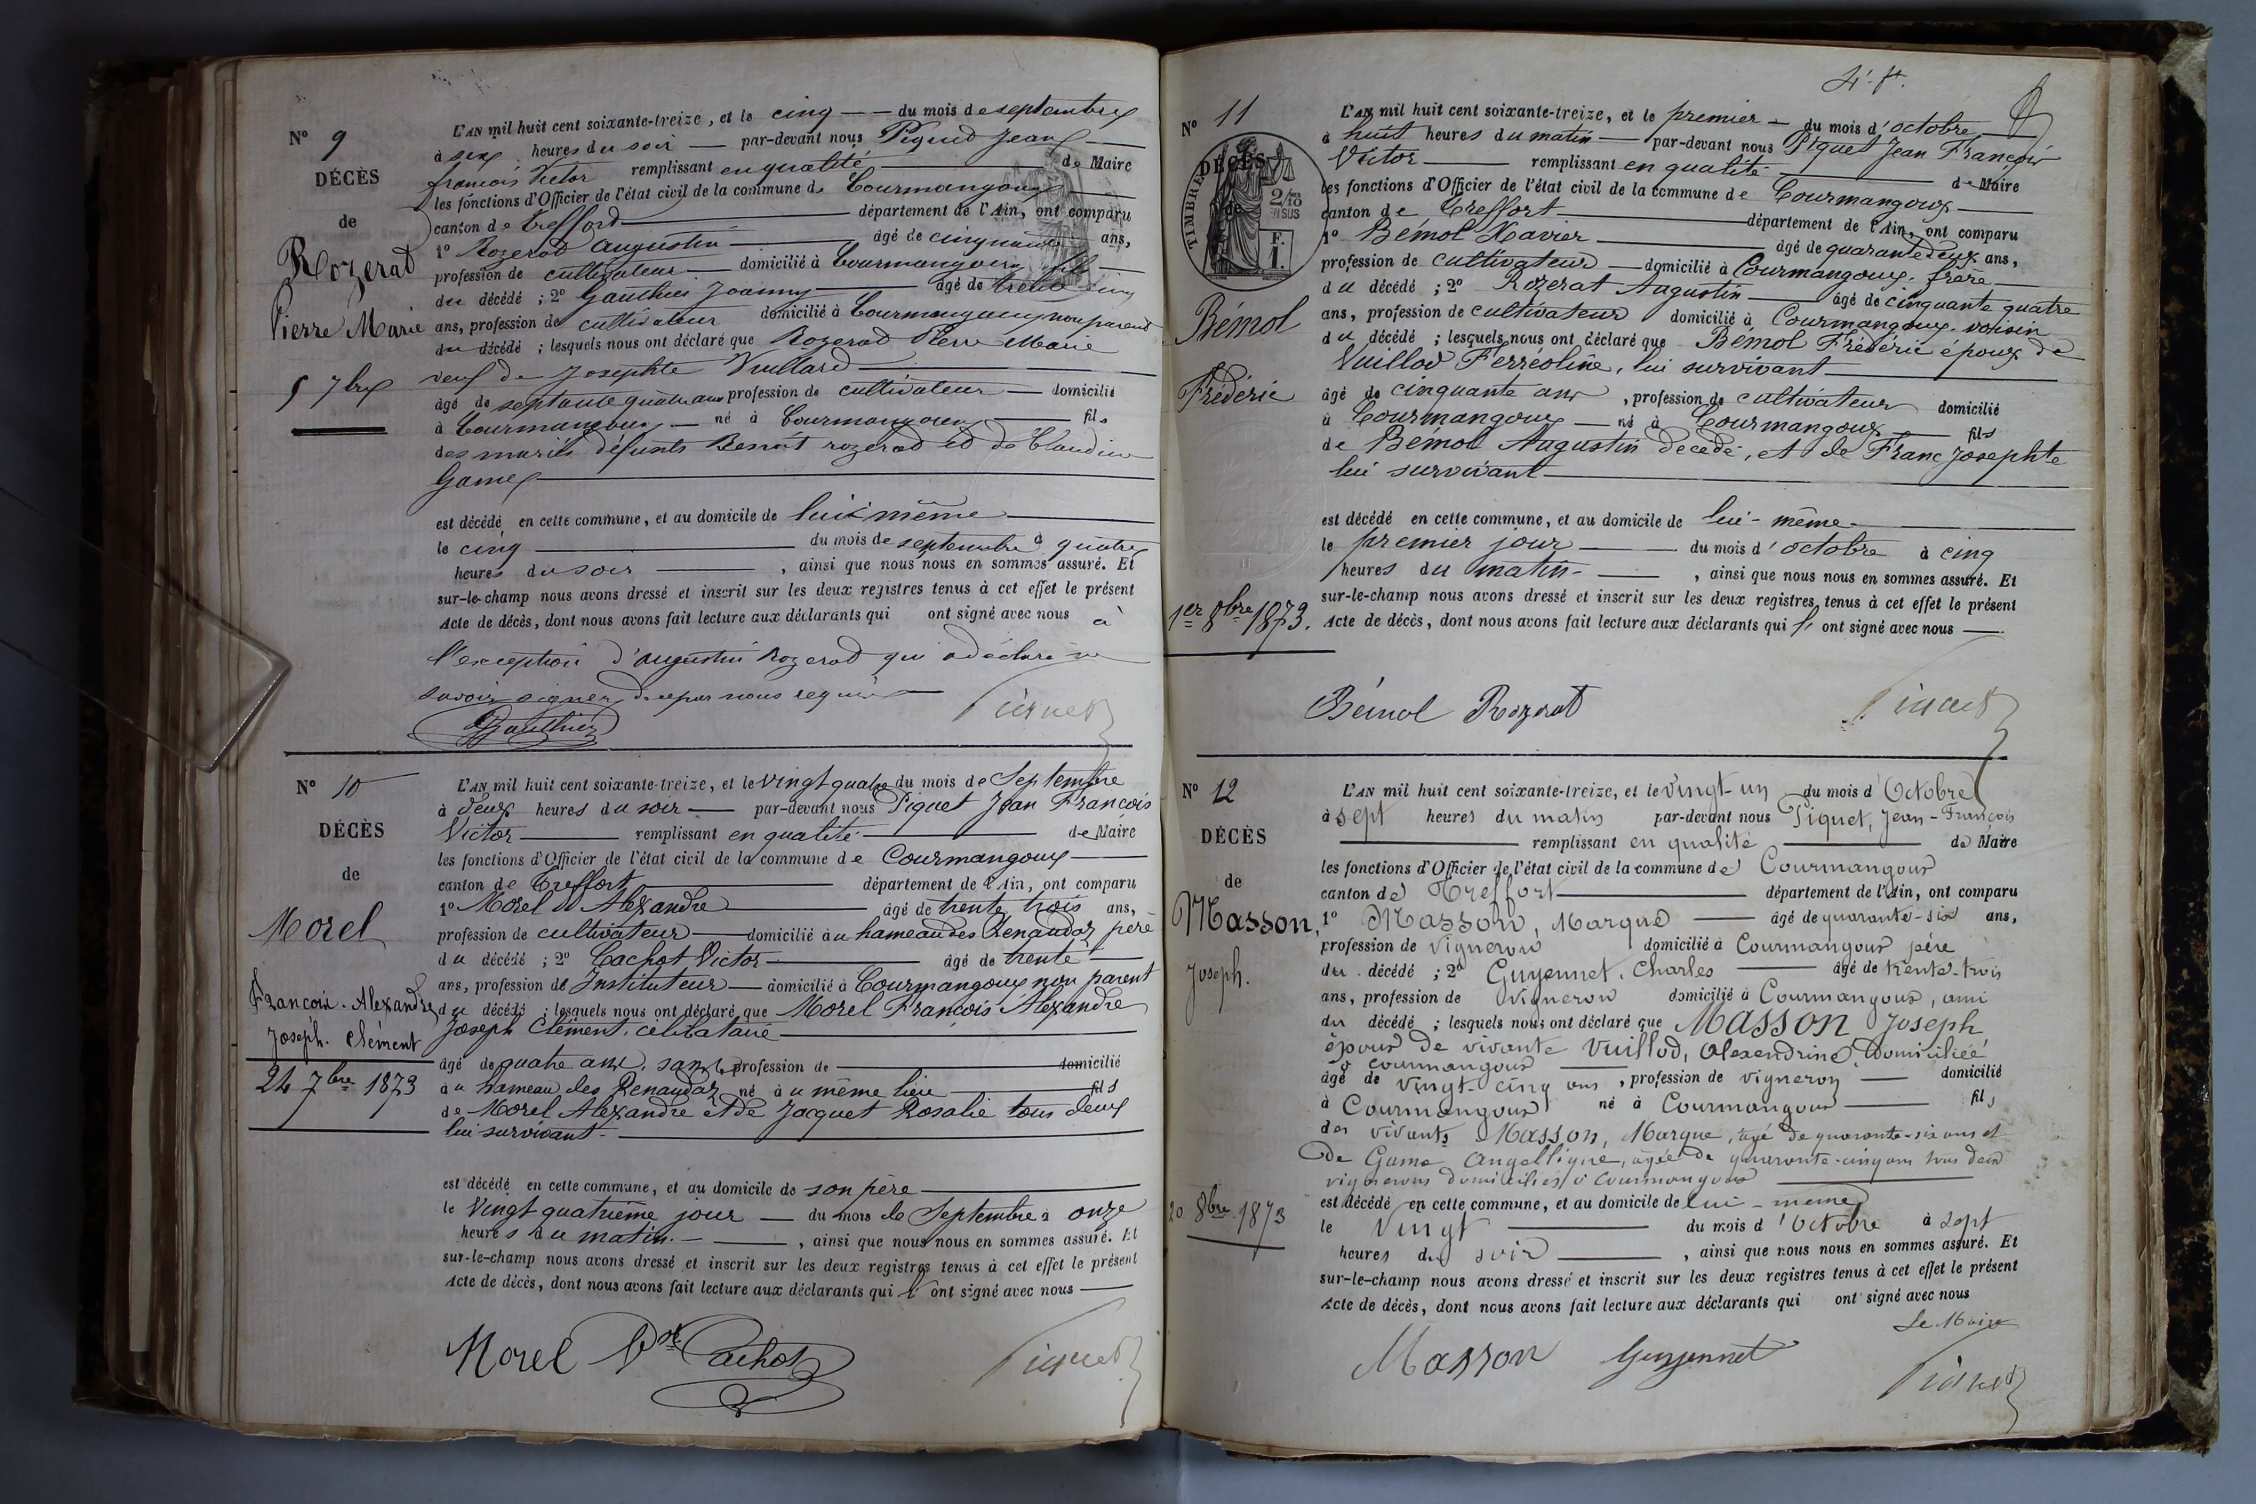 N° 9
DÉCÈS
de
Rozerat
Pierre Marie
5 7bre
L'AN mil huit cent soixante-treize, et le cinq du mois de septembre
à six heures du soir par-devant nous Piquet Jean
françois Victor remplissant en qualité de Maire
les fonctions d'Officier de l'état civil de la commune de Courmangoux
canton de Treffort département de l'Ain, ont comparu
1° Rozerat Augustin âgé de cinquante ans,
profession de cultivateur domicilié à Courmangoux fils
du décédé ; 2° Gauthier Joanny âgé de trente cinq
ans, profession de cultivateur domicilié à Courmangoux non parent
du décédé ; lesquels nous ont déclaré que Rozerat Pierre Marie
veuf de Josephte Vuillard
âgé de septante quatre ans profession de cultivateur domicilié
à Courmangoux né à Courmangoux fils
des mariés défunts Benoit rozerat et de Claudine
Game
est décédé en cette commune, et au domicile de lui même
le cinq du mois de septembre à quatre
heures du soir , ainsi que nous nous en sommes assuré. Et
sur-le-champ nous avons dressé et inscrit sur les deux registres tenus à cet effet le présent
Acte de décès, dont nous avons fait lecture aux déclarants qui ont signé avec nous à
l'exception d'augustin Rozerat qui a déclaré ne
savoir signer de ce par nous requis
Gauthier Piquet
N° 10
DÉCÈS
de
Morel
François-Alexandre
Joseph. Clément
24 7bre 1873
L'AN mil huit cent soixante-treize, et le vingt quatre du mois de Septembre
à deux heures du soir par-devant nous Piquet Jean François
Victor remplissant en qualité de Maire
les fonctions d'Officier de l'état civil de la commune de Courmangoux
canton de Treffort département de l'Ain, ont comparu
1° Morel Alexandre âgé de trente trois ans,
profession de cultivateur domicilié au hameau des Renaudaz père
du décédé ; 2° Cachot Victor âgé de trente
ans, profession de Instituteur domicilié à Courmangoux non parent
du décédé ; lesquels nous ont déclaré que Morel François Alexandre
Joseph Clément, célibataire
âgé de quatre ans, sans profession de domicilié
au hameau des Renaudaz né au même lieu fils
de Morel Alexandre et de Jacquet Rosalie tous deux
lui survivant.
est décédé en cette commune, et au domicile de son père
le vingt quatrième jour du mois de Septembre à onze
heures du matin. , ainsi que nous nous en sommes assuré. Et
sur-le-champ nous avons dressé et inscrit sur les deux registres tenus à cet effet le présent
Acte de décès, dont nous avons fait lecture aux déclarants qui l' ont signé avec nous
Morel Vor Cachot Piquet
N° 11
DÉCÈS
de
TIMBRE
2/10
EN SUS
F.
1.
Bémol
Frédéric
1er 8bre 1873.
L'AN mil huit cent soixante-treize, et le premier du mois d'octobre
à huit heures du matin par-devant nous Piquet Jean François
Victor remplissant en qualité de Maire
les fonctions d'Officier de l'état civil de la commune de Courmangoux
canton de Treffort département de l'Ain, ont comparu
1° Bémol Xavier âgé de quarante deux ans,
profession de cultivateur domicilié à Courmangoux, frère
du décédé ; 2° Rozerat Augustin âgé de cinquante quatre
ans, profession de cultivateur domicilié à Courmangoux, voisin
du décédé ; lesquels nous ont déclaré que Bémol Frédéric époux de
Vuillod Ferréoline, lui survivant
âgé de cinquante ans , profession de cultivateur domicilié
à Courmangoux né à Courmangoux fils
de Bémol Augustin décédé, et de Franc Josephte
lui survivant
est décédé en cette commune, et au domicile de lui-même
le premier jour du mois d'octobre à cinq
heures du matin , ainsi que nous nous en sommes assuré. Et
sur-le-champ nous avons dressé et inscrit sur les deux registres tenus à cet effet le présent
Acte de décès, dont nous avons fait lecture aux déclarants qui l' ont signé avec nous
Bémol Rozerat Piquet
N° 12
DÉCÈS
de
Masson,
Joseph.
20 8bre 1873
L'AN mil huit cent soixante-treize, et le vingt-un du mois d'Octobre
à sept heures du matin par-devant nous Piquet, Jean-François
remplissant en qualité de Maire
les fonctions d'Officier de l'état civil de la commune de Courmangoux
canton de Treffort département de l'Ain, ont comparu
1° Masson, Marque âgé de quarante-six ans,
profession de vigneron domicilié à Courmangoux père
du décédé ; 2° Guyennet, Charles âgé de trente-trois
ans, profession de vigneron domicilié à Courmangoux, ami
du décédé ; lesquels nous ont déclaré que Masson Joseph
époux de vivante Vuillod, Alexandrine, domiciliée
à courmangoux
âgé de vingt-cinq ans , profession de vigneron domicilié
à Courmangoux né à Courmangoux fils
des vivants Masson, Marque, âgé de quarante-six ans et
de Game Angelique, agée de quarante-cinq ans tous deux
vignerons domiciliés à Courmangoux
est décédé en cette commune, et au domicile de lui-même
le vingt du mois d'Octobre à sept
heures du soir , ainsi que nous nous en sommes assuré. Et
sur-le-champ nous avons dressé et inscrit sur les deux registres tenus à cet effet le présent
Acte de décès, dont nous avons fait lecture aux déclarants qui ont signé avec nous
Le Maire
Masson Guyennet Piquet